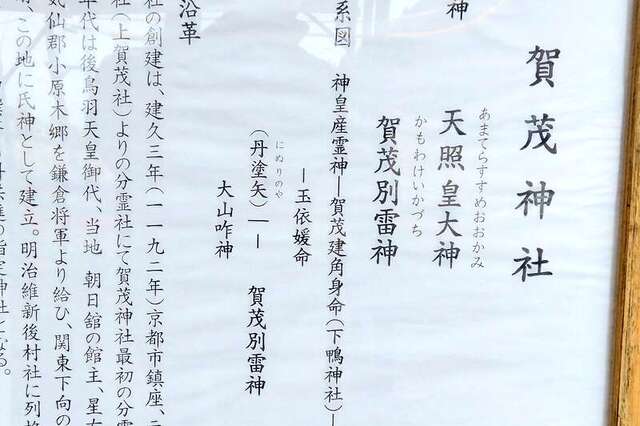 賀茂神社
神
あまてらすすめおおかみ
天照皇大神
かもわけいかづち
賀茂別雷神
系図
神皇産霊神―賀茂建角身命(下鴨神社)―
―玉依媛命
にぬりのや
(丹塗矢)――
賀茂別雷神
大山咋神
沿革
社の創建は、建久三年(一一九二年)京都市鎮座、
社(上賀茂社)よりの分霊社にて賀茂神社最初の分霊
年代は後鳥羽天皇御代、当地 朝日舘の館主、星
気仙郡小原木郷を鎌倉将軍より給ひ、関東下向の
、この地に氏神として建立。明治維新後村社に列格
指定神社となる。